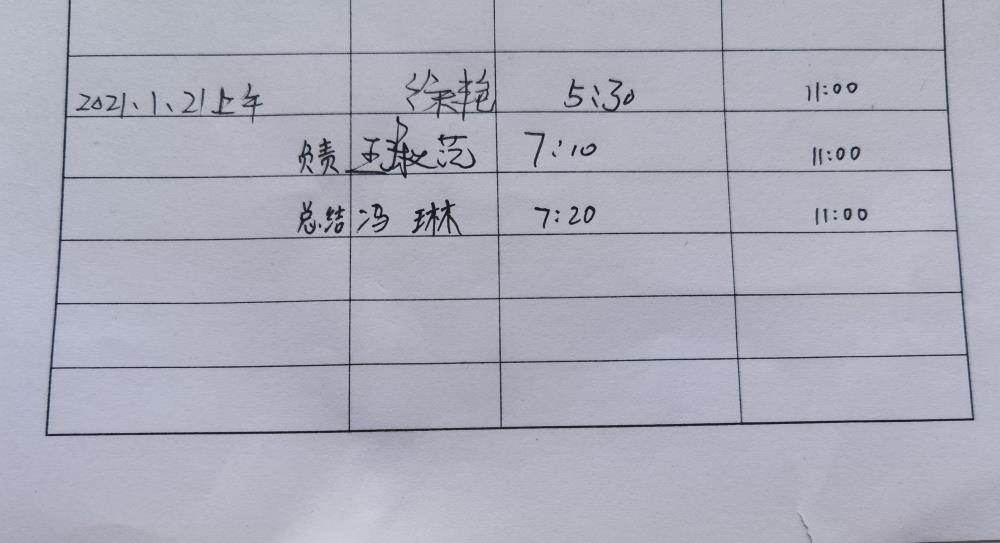 2021、1、21上午 徐艳 5:30 11:00
负责 王 范 7:10 11:00
总结 冯 琳 7:20 11:00